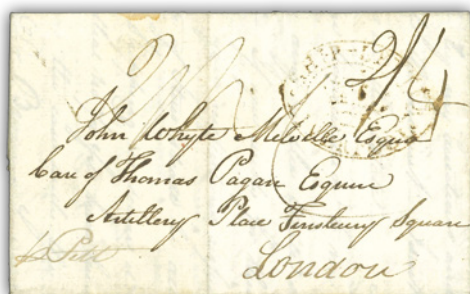 2/4
John Whyte Melville Esquire
Care of Thomas Pagan Esquire
Artillery Place Finsbury Square
London